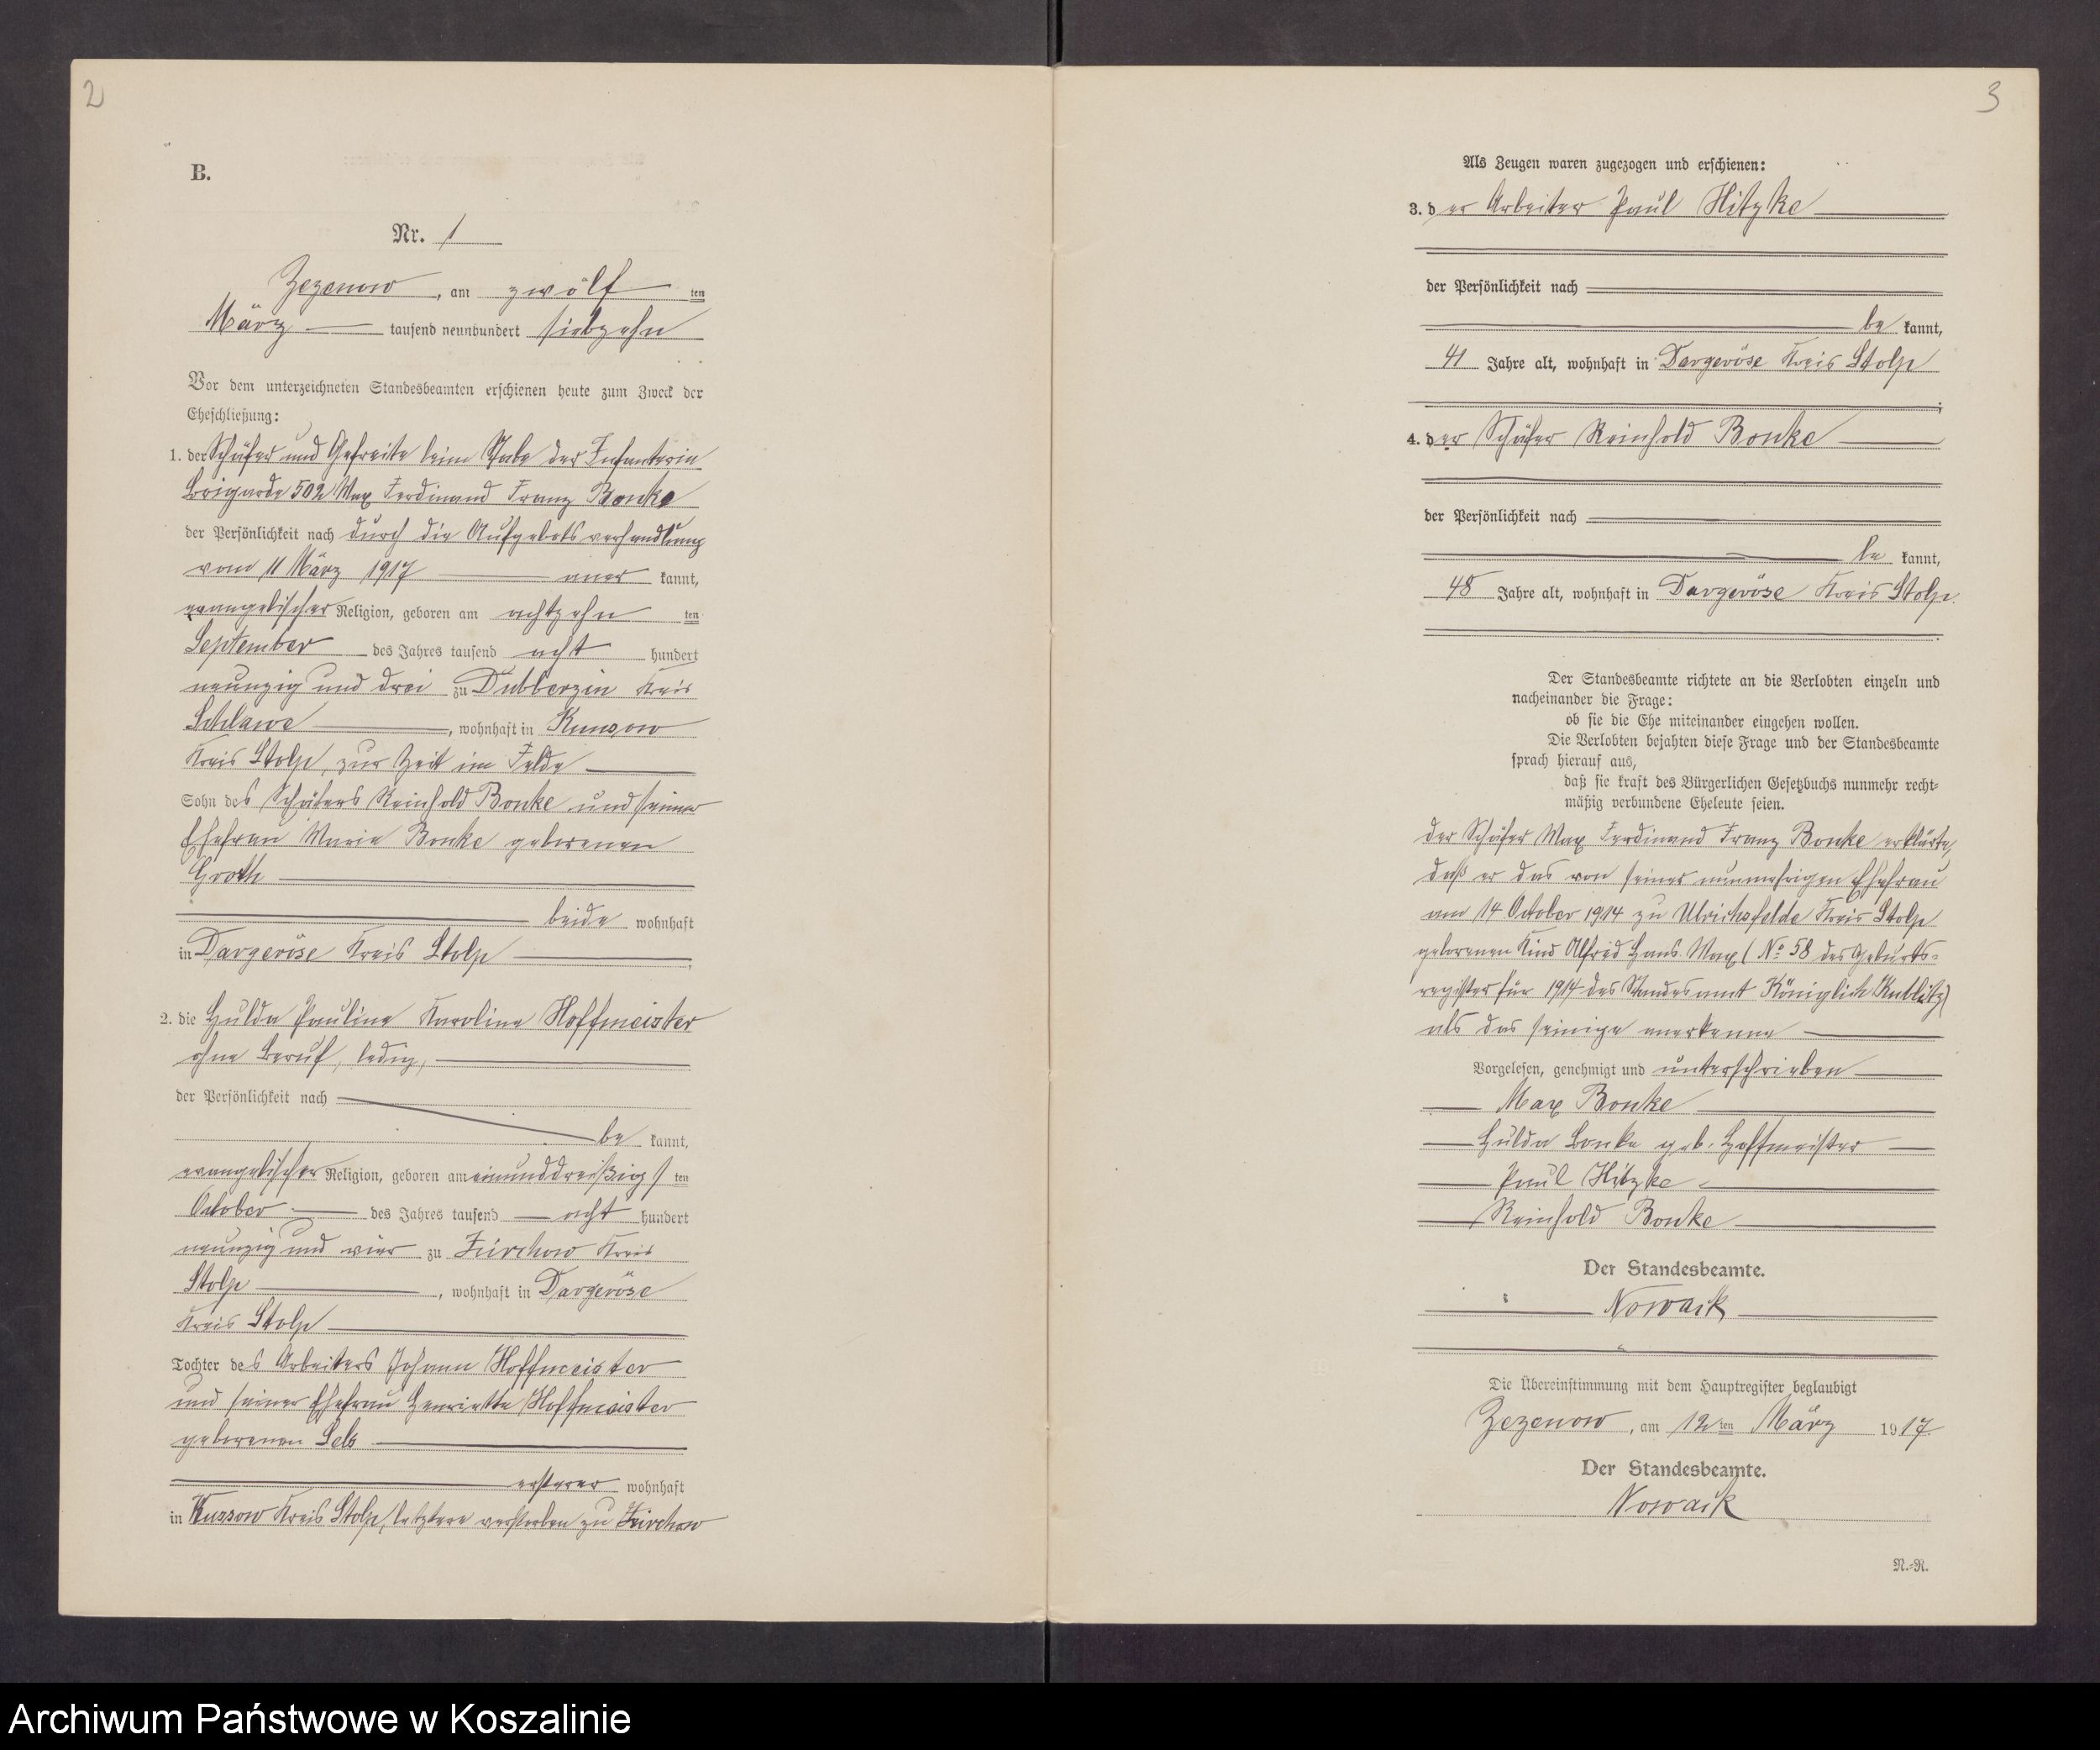 2
B.
Nr. 1
Zezenow, am zwölf ten
März tausend neunhundert siebzehn
Vor dem unterzeichneten Standesbeamten erschienen heute zum Zweck der
Eheschließung:
1. der Schäfer und Gefreite beim Stabe der Infanterie
Brigarde 502 Max Ferdinand Franz Bonke
der Persönlichkeit nach durch die Aufgebotsverhandlung
vom 11 März 1917 aner kannt,
evangelischer Religion, geboren am achtzehn ten
September des Jahres tausend acht hundert
neunzig und drei zu Dubberzin Kreis
Schlawe, wohnhaft in
Kreis Stolp, zur Zeit im Felde
Sohn des Schäfers Reinhold Bonke und seiner
Ehefrau Marie Bonke geborenen
Groth
beide wohnhaft
in Dargeröse Kreis Stolp
2. die Hulda Pauline Karoline Hoffmeister
ohne Beruf, ledig,
der Persönlichkeit nach
be kannt,
evangelischer Religion, geboren am einunddreißig s ten
October des Jahres tausend acht hundert
neunzig und vier zu Zirchow Kreis
Stolp, wohnhaft in Dargeröse
Kreis Stolp
Tochter des Arbeiters Johann Hoffmeister
und seiner Ehefrau Henriette Hoffmeister
geborenen
ersterer wohnhaft
in Kussow Kreis Stolp, letztere verstorben zu Zirchow
3
Als Zeugen waren zugezogen und erschienen:
3. der Arbeiter Paul Hitzke
der Persönlichkeit nach
be kannt,
41 Jahre alt, wohnhaft in Dargeröse Kreis Stolp
;
4. der Schäfer Reinhold Bonke
der Persönlichkeit nach
be kannt,
48 Jahre alt, wohnhaft in Dargeröse Kreis Stolp
.
Der Standesbeamte richtete an die Verlobten einzeln und
nacheinander die Frage:
ob sie die Ehe miteinander eingehen wollen.
Die Verlobten bejahten diese Frage und der Standesbeamte
sprach hierauf aus,
daß sie kraft des Bürgerlichen Gesetzbuchs nunmehr recht-
mäßig verbundene Eheleute seien.
der Schäfer Max Ferdinand Franz Bonke erklärte,
daß er das von seiner nunmehrigen Ehefrau
am 14 October 1914 zu Ulrichsfelde Kreis Stolp
geborenen Kind Alfred Hans Max (No 58 des Geburts-
register für 1914 des Standesamt Königlich Kublitz)
als das seinige anerkenne
Vorgelesen, genehmigt und unterschrieben
Max Bonke
Hulda Bonke geb. Hoffmeister
Paul Hitzke
Reinhold Bonke
Der Standesbeamte.
Nowack
Die Übereinstimmung mit dem Hauptregister beglaubigt
Zezenow, am 12 ten März 1917
Der Standesbeamte.
Nowack
N.-R.
Archiwum Państwowe w Koszalinie